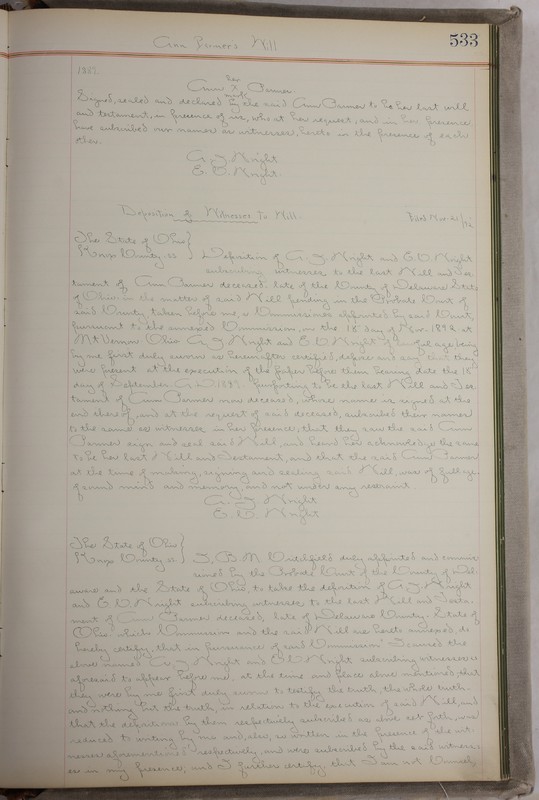 Ann Permer's Will
533
1887
her
Ann X Permer
mark
Signed, sealed and declared by the said Ann Permer to be her last will
and testament, in presence of us, who at her request, and in her presence
have subscribed our names as witnesses, hereto in the presence of each
other.
A. J. Wright
E. D. Wright
Deposition of Witnesses to Will. Filed Nov. 21/92
The State of Ohio }
Knox County ss } Deposition of A. J. Wright and E. D. Wright
subscribing witnesses to the last Will and Tes-
tament of Ann Permer deceased, late of the County of Delaware State
of Ohio, in the matter of said Will pending in the Probate Court of
said County, taken before me, a Commissioner appointed by said Court,
pursuant to the annexed Commission, on the 18 day of Nov. 1892 at
Mt Vernon Ohio. A. J. Wright and E. D. Wright of lawful age, being
by me first duly sworn as hereinafter certified, depose and say, that they
were present at the execution of the paper before them bearing date the 15
day of September A.D. 1887. purporting to be the last Will and Tes-
tament of Ann Permer now deceased, whose name is signed at the
end thereof, and at the request of said deceased, subscribed their names
to the same as witnesses in her presence; that they saw the said Ann
Permer sign and seal said Will, and heard her acknowledge the same
to be her last Will and Testament, and that the said Ann Permer
at the time of making, signing and sealing said Will, was of full age
of sound mind and memory, and not under any restraint.
A. J. Wright
E. D. Wright
The State of Ohio }
Knox County ss } I, B. M. duly appointed and commis-
sioned by the Probate Court of the County of Del-
aware and the State of Ohio, to take the deposition of A. J. Wright
and E. D. Wright subscribing witnesses to the last Will and Testa-
ment of Ann Permer deceased, late of Delaware County, State of
Ohio which Commission and the said Will are hereto annexed, do
hereby certify, that in pursuance of said Commission I caused the
above named A. J. Wright and E. D. Wright subscribing witnesses as
aforesaid to appear before me, at the time and place above mentioned, that
they were by me first duly sworn to testify the truth, the whole truth.
and nothing but the truth, in relation to the execution of said Will, and
that the depositions by them respectively subscribed as above set forth, was
reduced to writing by me and, also, so written in the presence of the wit-
nesses aforementioned respectively, and was subscribed by the said witness-
es in my presence; and I further certify, that I am not Counsel,